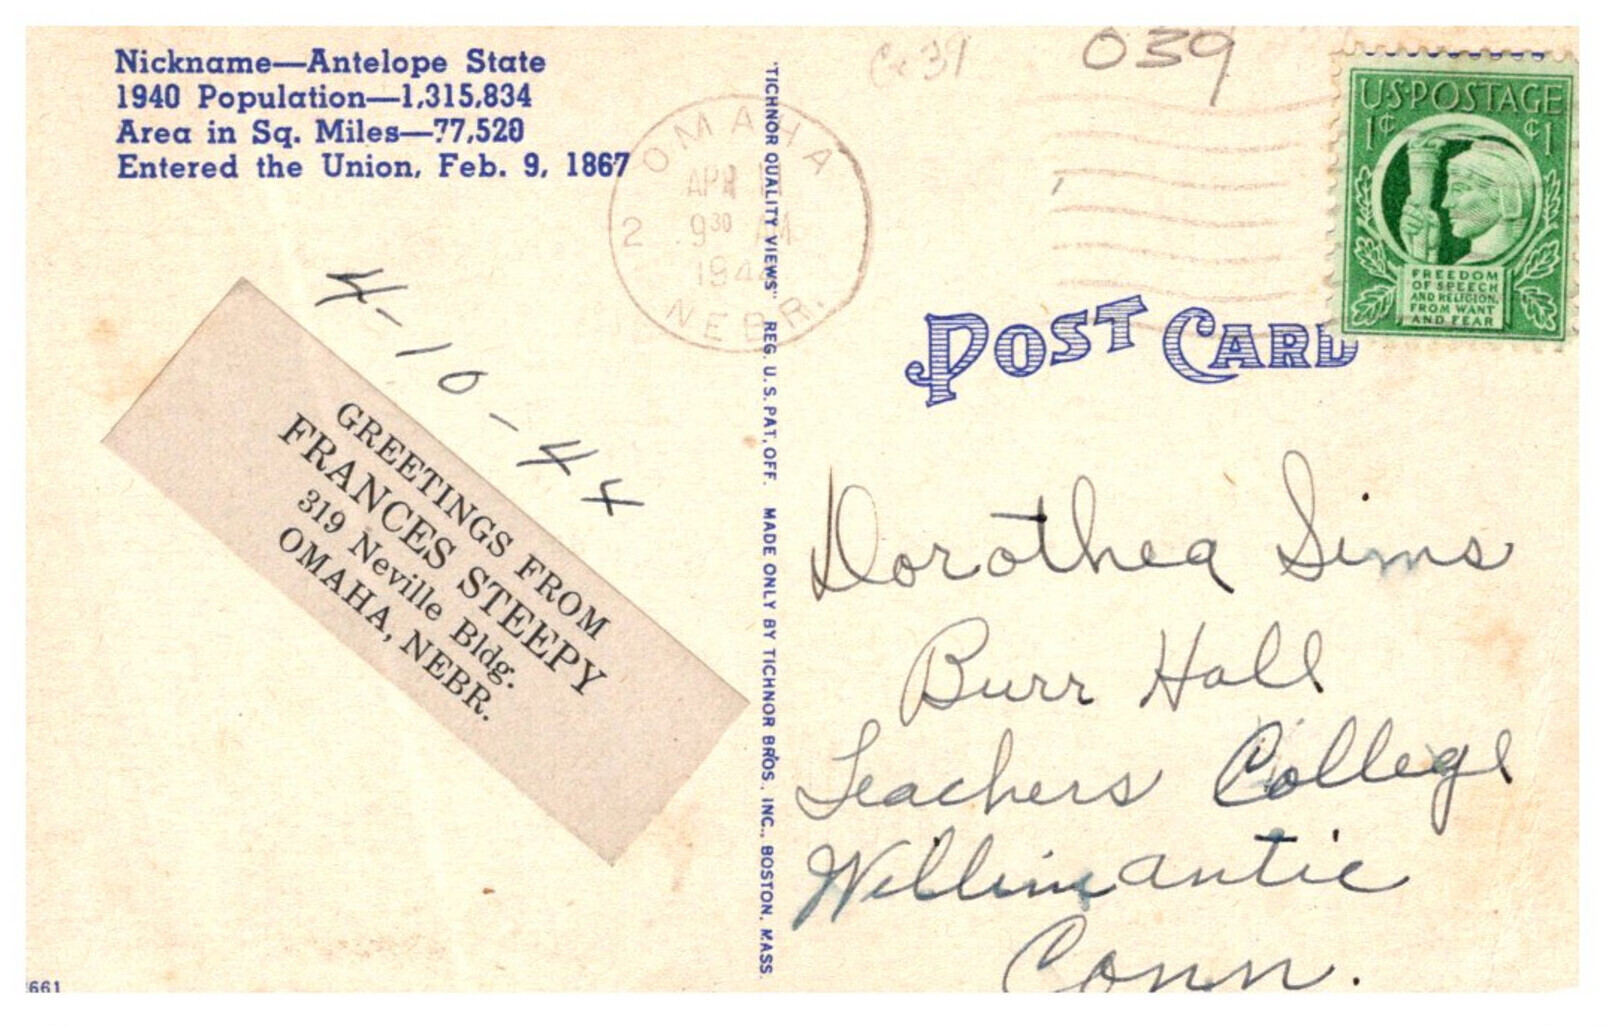 Nickname—Antelope State
1940 Population—1,315,834
Area in Sq. Miles—77,520
Entered the Union, Feb. 9, 1867
4-10-44
GREETINGS FROM
FRANCES STEEPY
319 Neville Bldg.
OMAHA, NEBR.
661
OMAHA
APR
2 9 30 AM
1944
NEBR.
"TICHNOR QUALITY VIEWS" REG. U.S. PAT. OFF. MADE ONLY BY TICHNOR BROS., INC., BOSTON, MASS.
039
U.S. POSTAGE
1¢ ¢1
FREEDOM
OF SPEECH
AND RELIGION,
FROM WANT
AND FEAR
POST CARD
Dorothea Sims
Burr Hall
Teachers College
Willimantic
Conn.